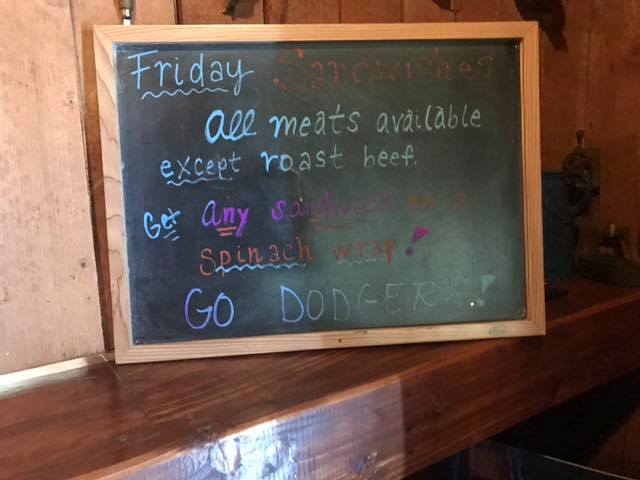 Friday Sandwiches
All meats available
except roast beef.
Get any sandwich on a
spinach wrap!
GO DODGERS!